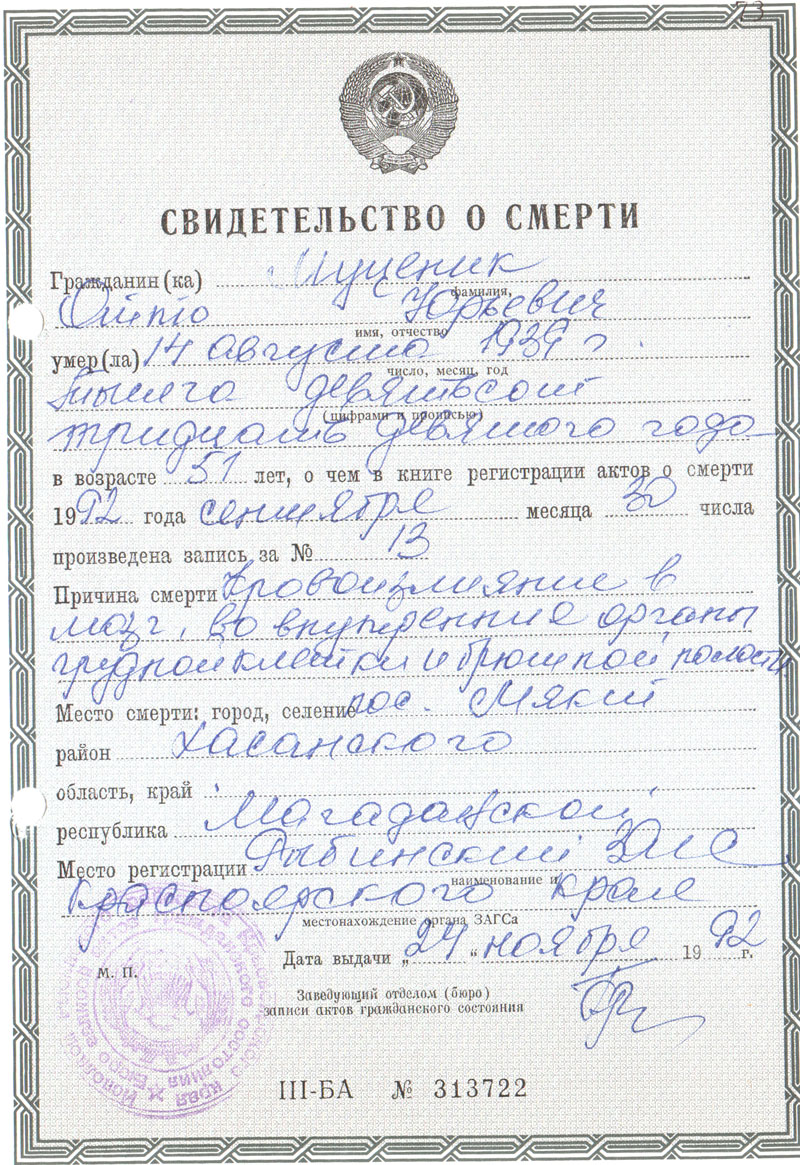 73
СВИДЕТЕЛЬСТВО О СМЕРТИ
Гражданин(ка) Мученик
фамилия,
Юрьевич
имя, отчество
умер(ла) 14 августа 1939 г.
число, месяц, год
тысяча девятьсот
(цифрами и прописью)
тридцать девятого года
в возрасте 51 лет, о чем в книге регистрации актов о смерти
1992 года сентября месяца 30 числа
произведена запись за № 13
Причина смерти Кровоизлияние в
мозг, во внутренние органы
грудной клетки и брюшной полости
Место смерти: город, селение пос. Мякий
район Хасанского
область, край
республика Магаданской
Место регистрации Рыбинский ЗАГС
наименование и
Красноярского края
местонахождение органа ЗАГСа
Дата выдачи „24“ ноября 1992 г.
М. П.
Заведующий отделом (бюро)
записи актов гражданского состояния
III-БА № 313722